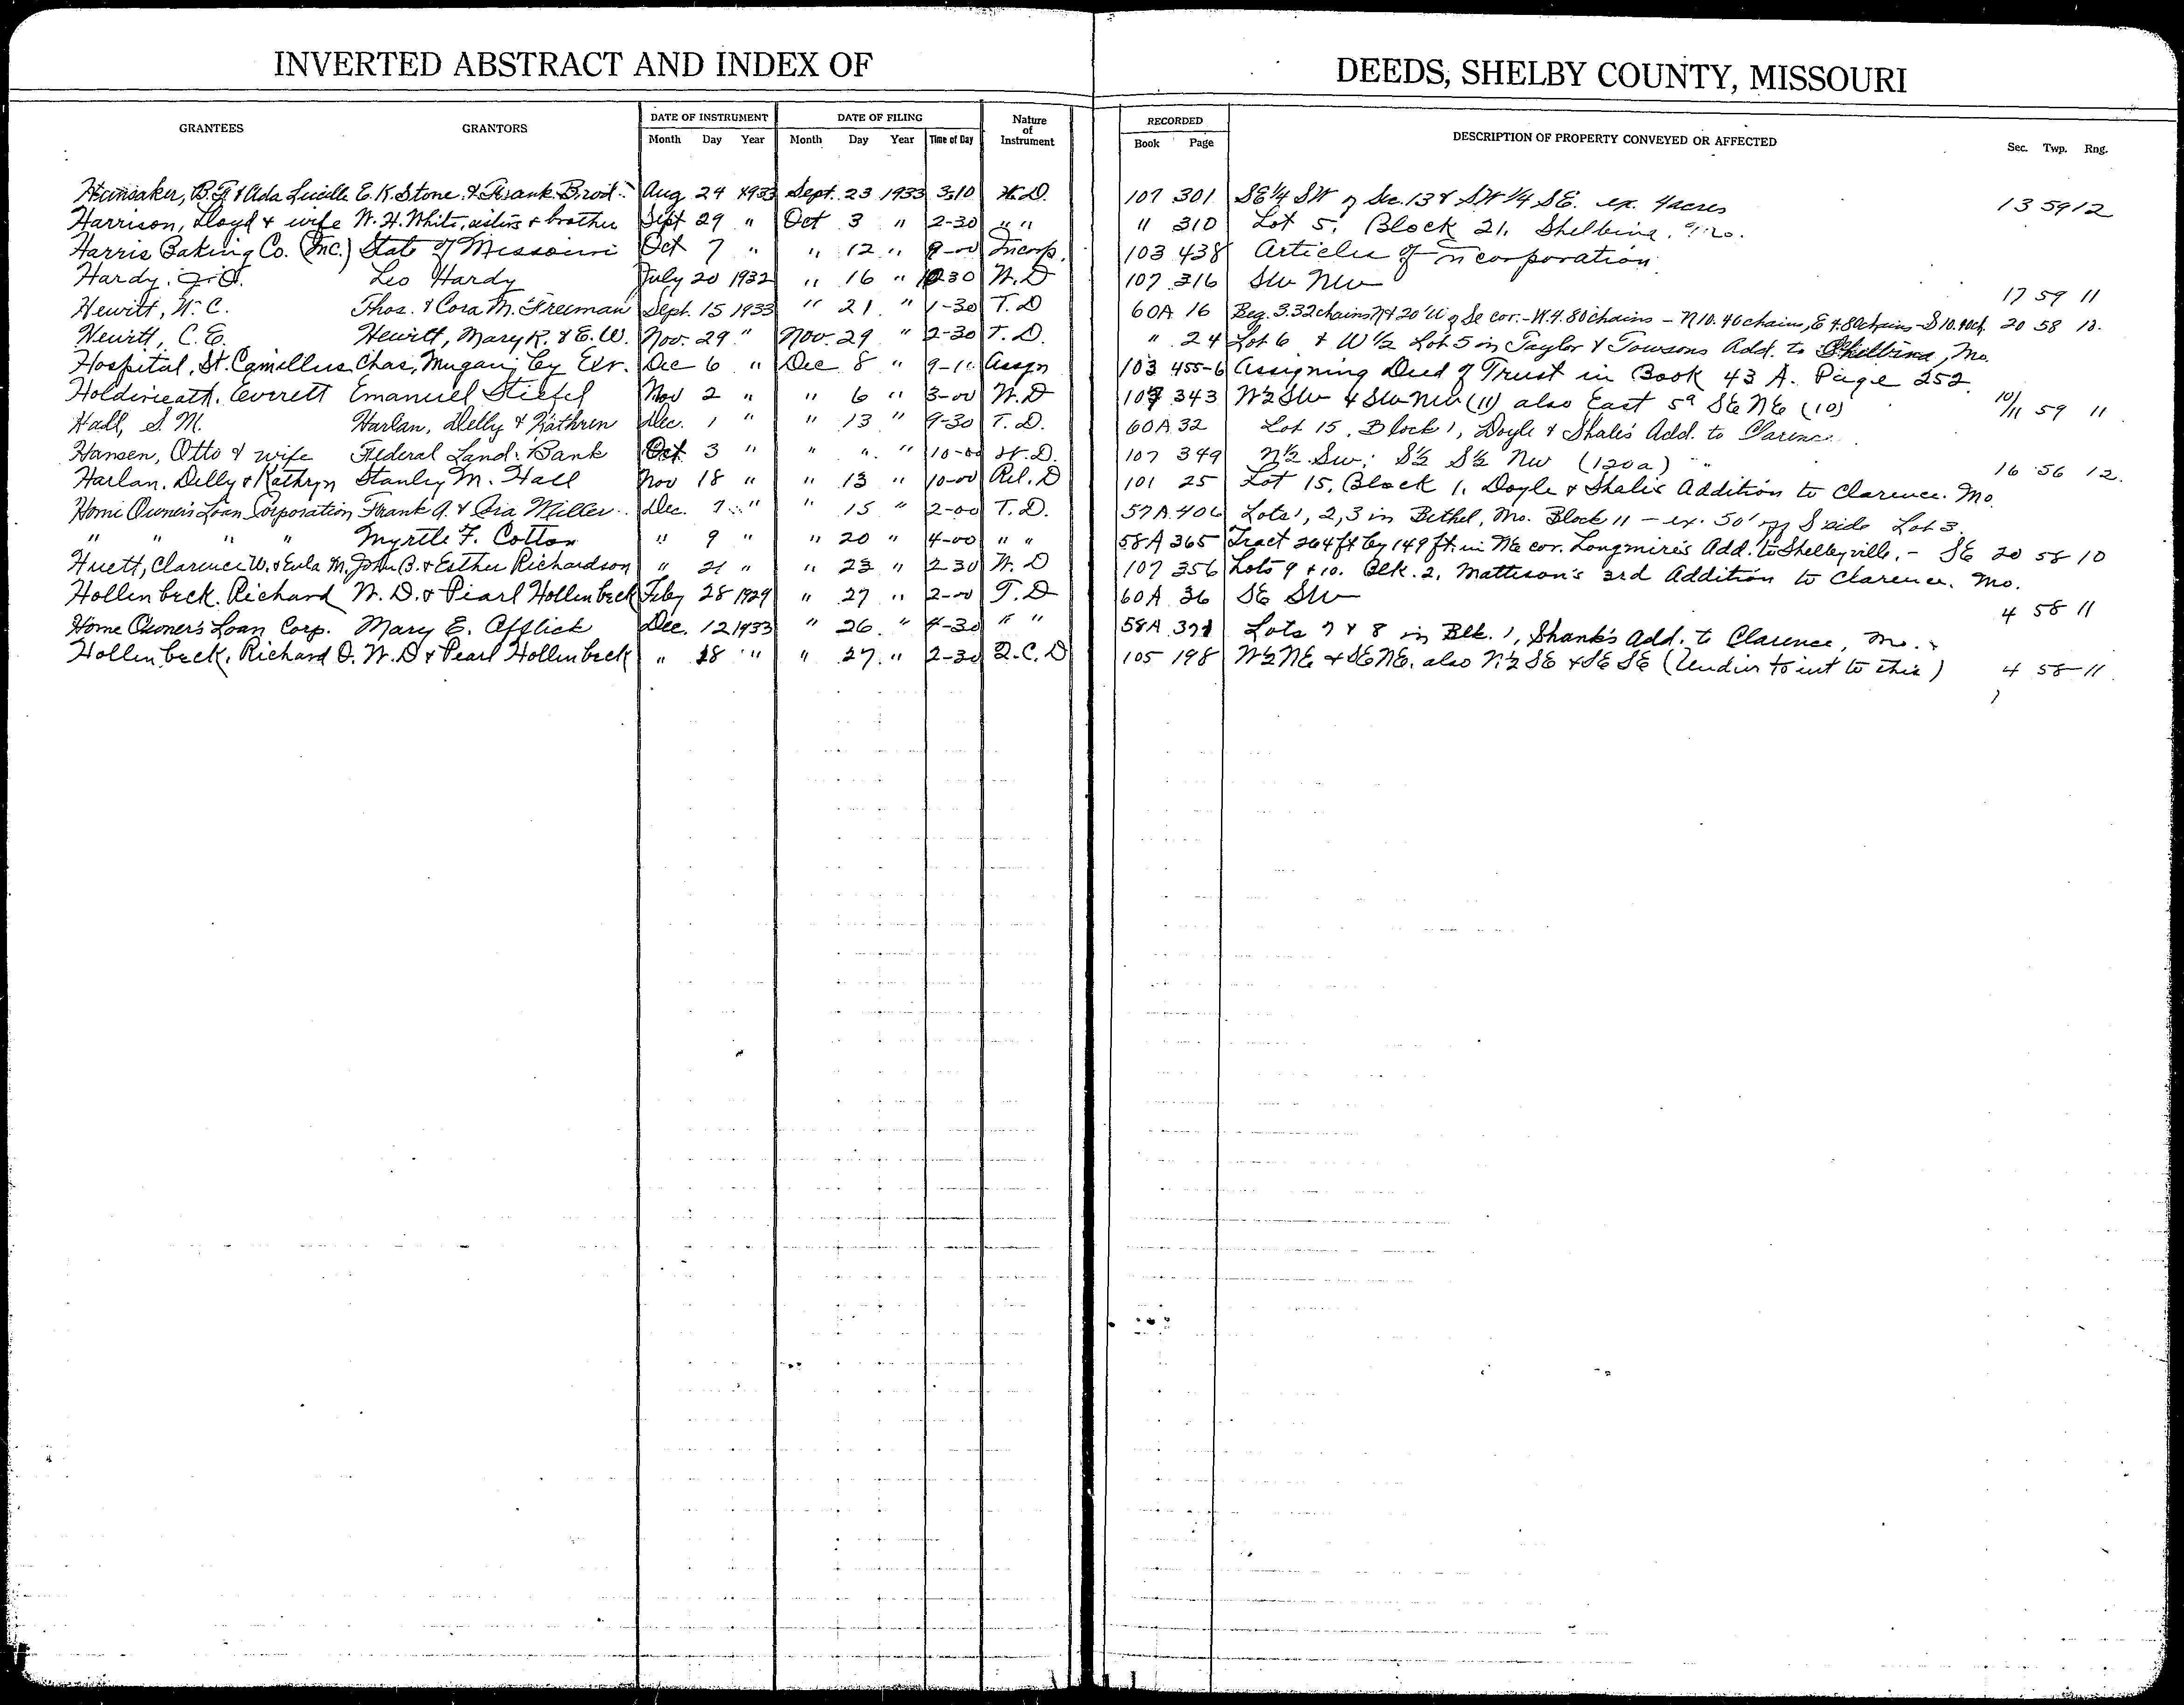 INVERTED ABSTRACT AND INDEX OF DEEDS, SHELBY COUNTY, MISSOURI
GRANTEES GRANTORS DATE OF INSTRUMENT DATE OF FILING Nature of Instrument RECORDED DESCRIPTION OF PROPERTY CONVEYED OR AFFECTED Sec. Twp. Rng.
Month Day Year Month Day Year Time of Day Book Page
Hunsaker, B.F. & Ada Lucille E.K. Stone & Frank Brod. Aug 24 1933 Sept. 23 1933 3-10 W.D. 107 301 SE 1/4 SW of Sec. 13 & SW 1/4 SE. ex. 4 acres 13 59 12
Harrison, Lloyd & wife W. H. White, sisters & brother Sept 29 " Oct 3 " 2-30 " " " 310 Lot 5, Block 21, Shelbina, Mo.
Harris Baking Co. (Inc.) State of Missouri Oct 7 " " 12 " 9-00 Incorp. 103 438 Articles of Incorporation
Hardy, Leo Hardy July 20 1932 " 16 " W.D 107 316 SW NW 17 59 11
Hewitt, W. C. Thos. & Cora M. Freeman Sept. 15 1933 " 21 " 1-30 T.D 60A 16 Beg. 3.32 chains N & 20' W of SE cor. - W. 4.80 chains - N 10.46 chains, E 4.80 chains - S 10.40 ch. 20 58 10.
Hewitt, C. E. Hewitt, Mary K. & E. W. Nov. 29 " Nov. 29 " 2-30 T. D. " 24 Lot 6 & W 1/2 Lot 5 in Taylor & Towsons Add. to Shelbina, Mo.
Hospital, St. Camillus Chas. Mugan, by Exr. Dec 6 " Dec 8 " 9- Assgn 103 455-6 Assigning Deed of Trust in Book 43 A. Page 252
Everett Emanuel Stiefel Nov 2 " " 6 " 3-00 W.D 107 343 W½ SW & SW NW (11) also East 5a SE NE (10) 10/11 59 11
Hall, S. M. Harlan, Delly & Kathren Dec. 1 " " 13 " 9-30 T. D. 60A 32 Lot 15, Block 1, Doyle & Shale's Add. to Clarence
Hansen, Otto & wife Federal Land Bank Oct 3 " " " " 10-00 W.D. 107 349 N½ SW; S½ S½ NW (120a) 16 56 12.
Harlan, Delly & Kathryn Stanley M. Hall Nov 18 " " 13 " 10-00 Rel. D 101 25 Lot 15, Block 1, Doyle & Shale's Addition to Clarence. Mo.
Home Owner's Loan Corporation Frank A. & Miller Dec. 7 " " 15 " 2-00 T. D. 57A 406 Lots 1, 2, 3 in Bethel, Mo. Block 11 - ex. 50' off S side Lot 3.
" " " " Myrtle F. Cotton " 9 " " 20 " 4-00 " " 58A 365 Tract 264 ft by 149 ft. in NE cor. Longmire's Add. to Shelbyville. - SE 20 58 10
Huett, Clarence W. & Eula M. John B. & Esther Richardson " 21 " " 23 " 2 30 W. D 107 356 Lots 9 & 10. Blk. 2. Mattison's 3rd Addition to Clarence. Mo.
Hollenbeck, Richard W. D. & Pearl Hollenbeck Feby 28 1929 " 27 " 2-00 T.D 60A 36 SE SW 4 58 11
Home Owner's Loan Corp. Mary E. Afflick Dec. 12 1933 " 26 " 4-30 " " 58A 371 Lots 7 & 8 in Blk. 1, Shank's Add. to Clarence, Mo.
Hollenbeck, Richard O. W. D & Pearl Hollenbeck " 18 " " 27 " 2-30 Q.C.D 105 198 W½ NE & SE NE, also N½ SE & SE SE int to this) 4 58 11